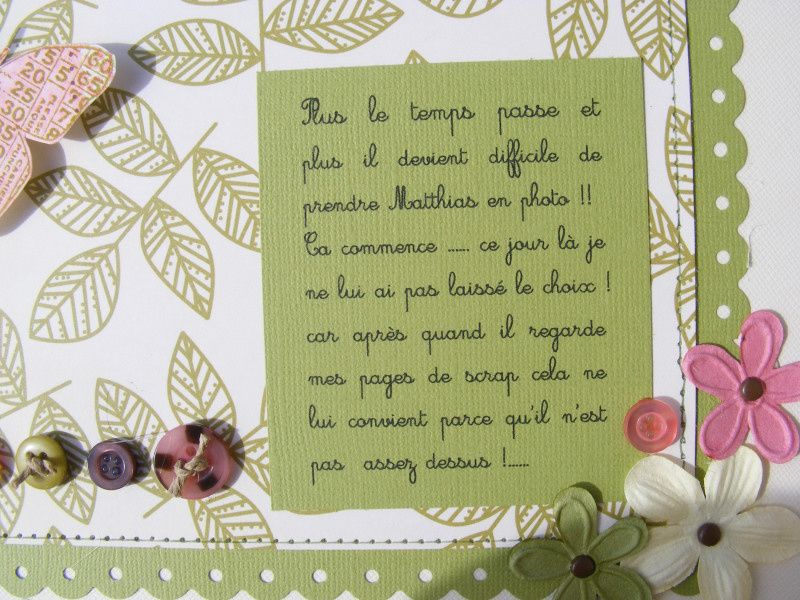 Plus le temps passe et
plus il devient difficile de
prendre Matthias en photo !!
Ca commence ...... ce jour là je
ne lui ai pas laissé le choix !
car après quand il regarde
mes pages de scrap cela ne
lui convient parce qu'il n'est
pas assez dessus !......